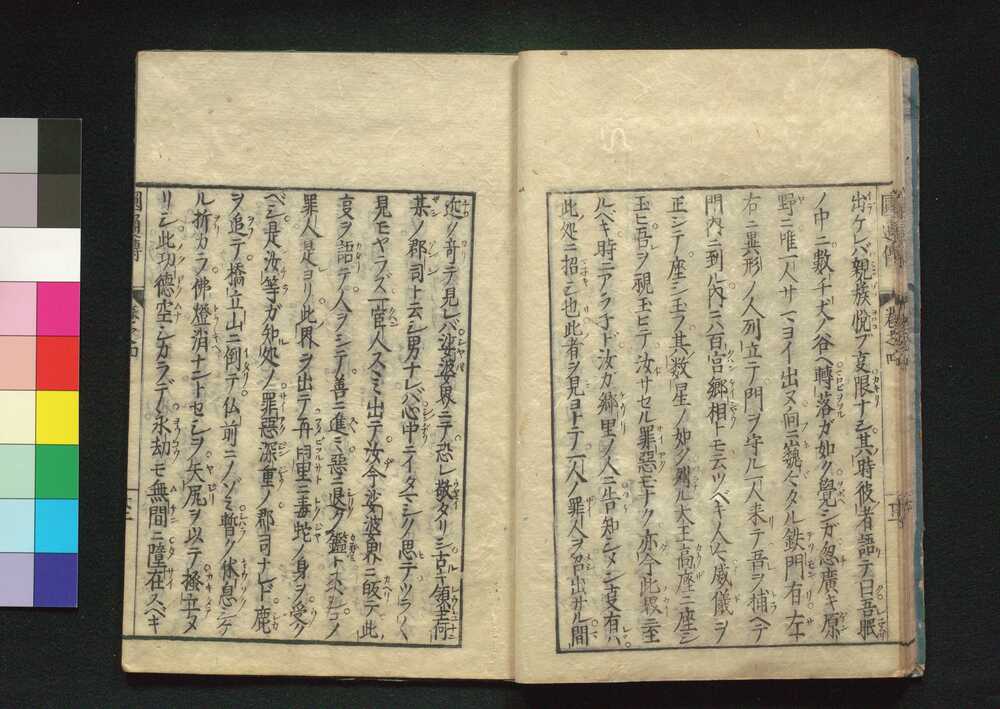 出ケレバ親族悦ブ㕝限ナシ其時彼者語テ曰吾眠
ノ中ニ数千丈ノ谷ヘ轉落ガ如ク覚シガ忽廣キ原
野ニ唯一人サマヨイ出ヌ向ニ巍々タル鉄門有左
右ニ異形ノ人列立テ門ヲ守ル一人来テ吾ヲ捕ヘテ
門内ニ到ル内ニハ百宮郷相トモ云ツベキ人々威儀ヲ
正シテ座シ玉フ其数星ノ如ク列ル大王高座ニ座シ
玉ヒ吾ヲ視玉ヒテ汝サセル罪悪モナク亦今此殿ニ至
ルベキ時ニアラ子ド汝カ郷里ノ人ニ告知シマン㕝有ハ
此処ニ招シ也此者ヲ見ヨトテ一人ノ罪人ヲ召出サル間
近ク奇テ見レバ娑婆界ニテ恐レ敬タリシ古ヘ領主何
某ノ郡司ト云シ男ナレバ心中ニイタマシク思テツラ〱
見モヤラズ一官人スヽミ出テ汝今娑婆界ニ皈テ此
㕝ヲ語テ人ヲシテ善ニ進ミ悪ニ退ク鑑トスベシコノ
罪人是ヨリ此界ヲ出テ再同里ニ毒蛇ノ身ヲ受ク
ベシ是汝等ガ知処ノ罪悪深重ノ郡司ナレド鹿
ヲ追テ橋立山ニ倒テ仏前ニノゾミ暫ク休息シテ
ル折カラ佛燈消ナントセシヲ矢尻ヲ以テ掻立タ
リシ此功徳空シカラデ永劫モ無間ニ墮在スベキ